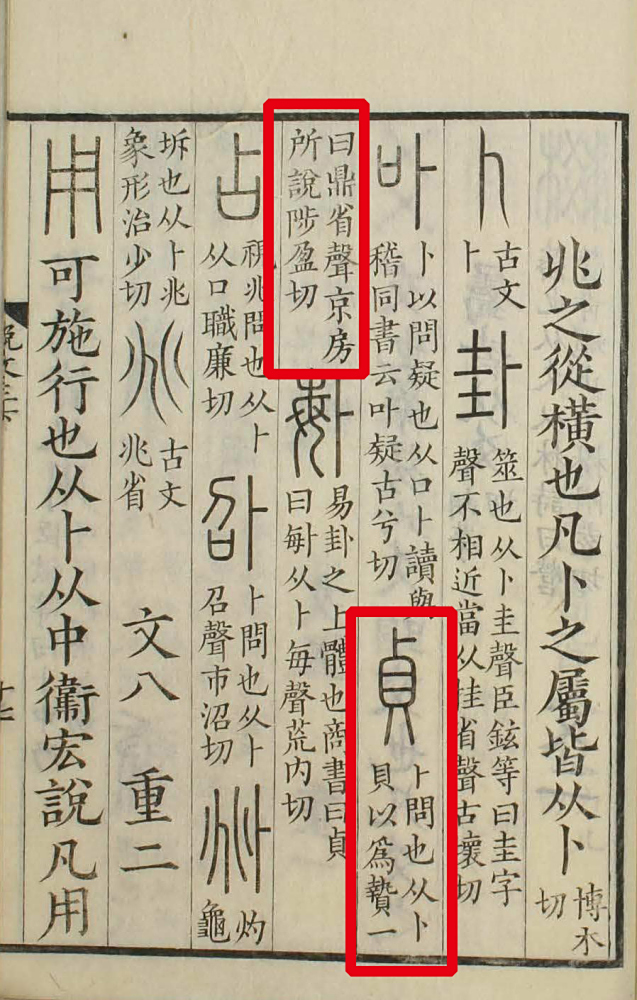 兆之從橫也凡卜之屬皆从卜博木切
卜古文卜卦筮也从卜圭聲臣鉉等曰圭字聲不相近當从挂省聲古壞切
卟卜以問疑也从口卜讀與稽同書云叶疑古兮切貞卜問也从卜貝以爲贄一
曰鼎省聲京房所說陟盈切𠧩易卦之上體也商書曰貞曰𠧩从卜每聲荒内切
占視兆問也从卜从口職廉切𠧙卜問也从卜召聲市沼切𠧞灼龜
坼也从卜兆象形治少切兆古文兆省 文八 重二
用可施行也从卜从中衞宏說凡用